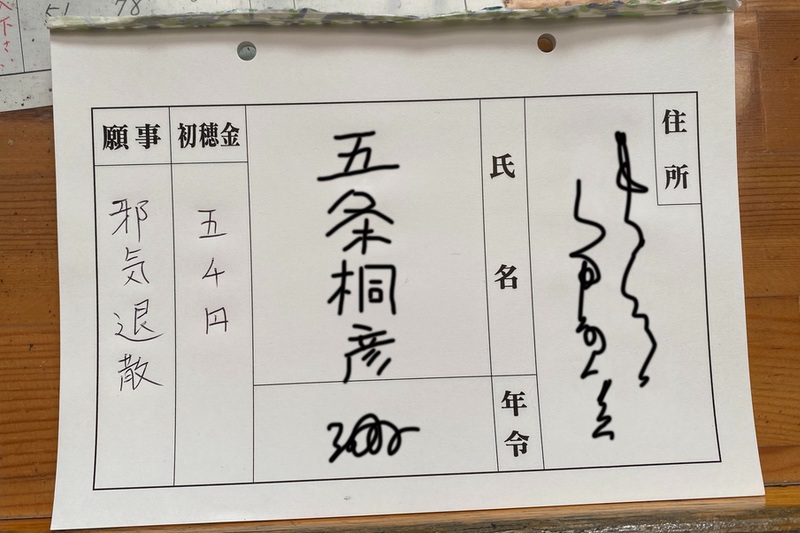 住所
氏名
五条桐彦
年令
初穂金
五千円
願事
邪気退散
51 78
下さ